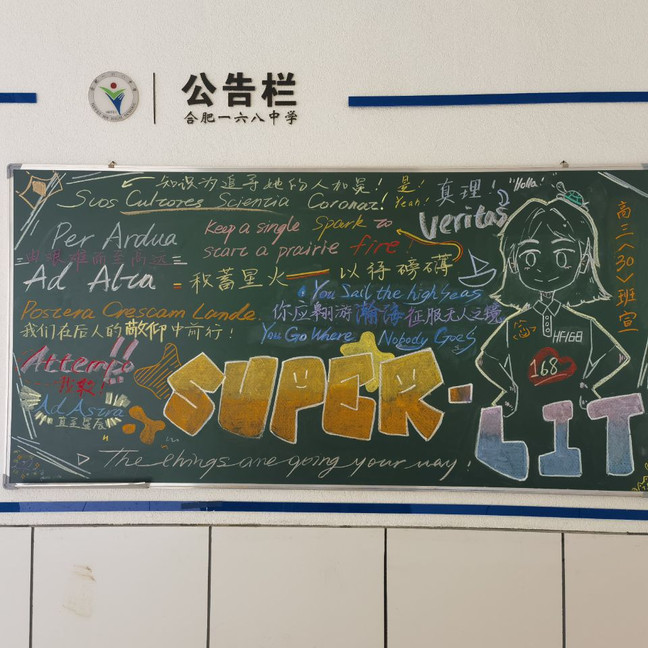 公告栏
合肥一六八中学
知识为追寻她的人加冕！是！真理！"Holla!"
Suos Cultores Scientia Coronat! Yeah! Veritas
Per Ardua
由艰难而至高远
Ad Alta
Keep a single Spark to
start a prairie fire!
秋蓄星火 — 以待磅礴
Postera Crescam Laude
我们在后人的敬仰中前行！
You Sail the high Seas
你应翱游瀚海征服无人之境
You Go Where Nobody Goes
Attempo!!
我敢！
Ad Astra
直至星辰
SUPER-LIT
The things are going your way!
HF168
168
高三〈30〉班宣